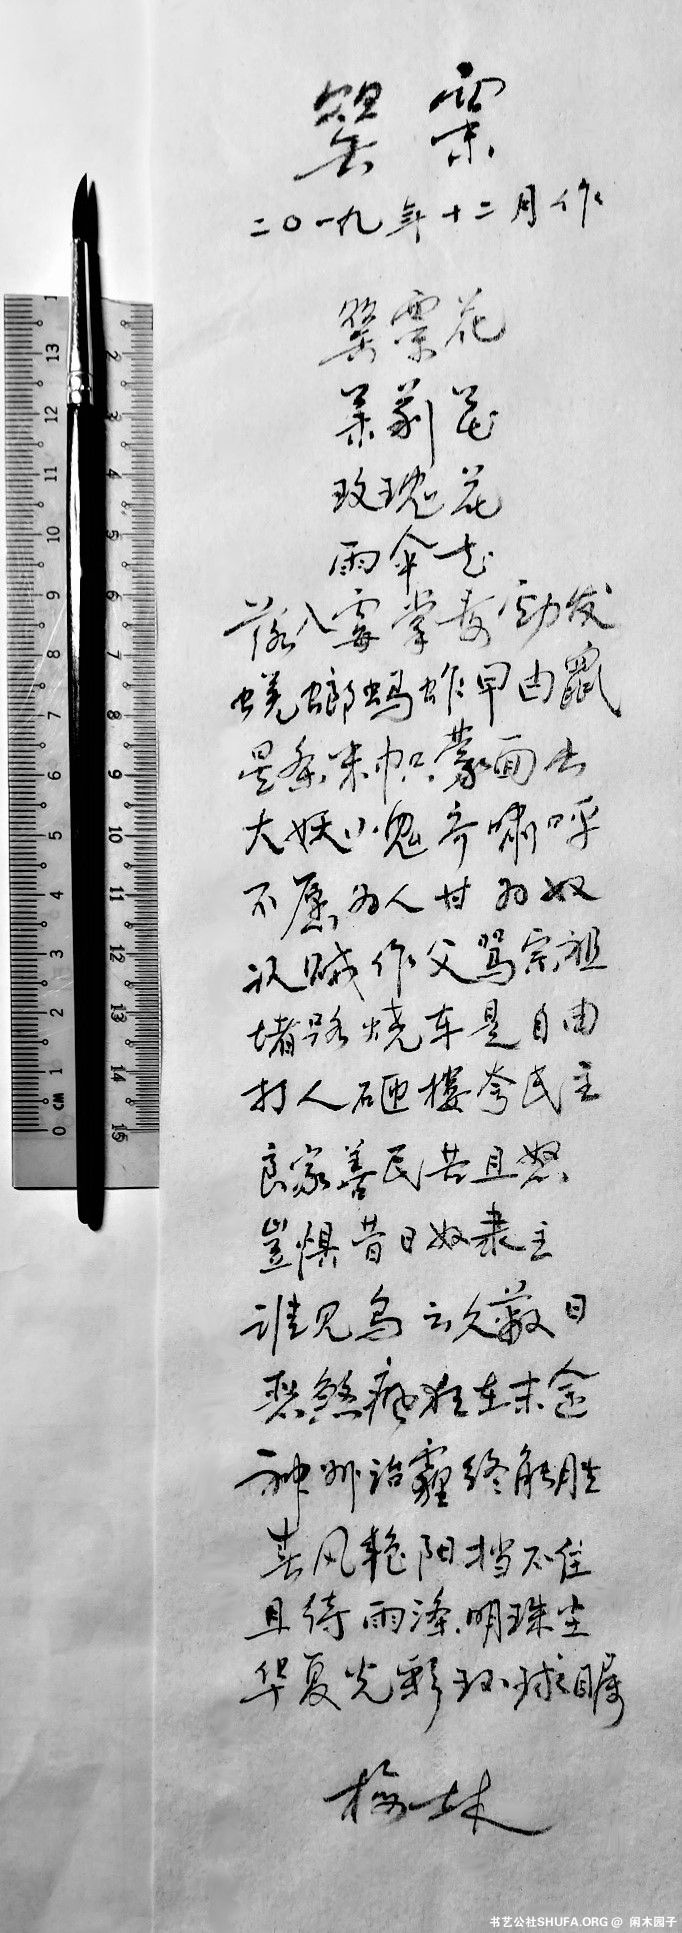 罂粟
二〇一九年十二月作
罂粟花
茉莉花
玫瑰花
雨伞花
落入霉掌毒劲发
螳螂蚂蚱曱甴鼠
黑条米帜蒙面出
大妖小鬼齐啸呼
不愿为人甘为奴
认贼作父骂宗祖
堵路烧车是自由
打人砸楼夸民主
良家善民苦且怒
岂惧昔日奴隶主
谁见乌云久蔽日
恶煞疯狂在末途
神州治霾终能胜
春风艳阳挡不住
且待雨涤明珠尘
华夏光彩环球瞩
梅林
13
12
11
10
9
8
7
6
5
4
3
2
1
0 CM
2
3
4
5
6
7
8
9
10
11
12
13
14
15
书艺公社SHUFA.ORG @ 闲木园子